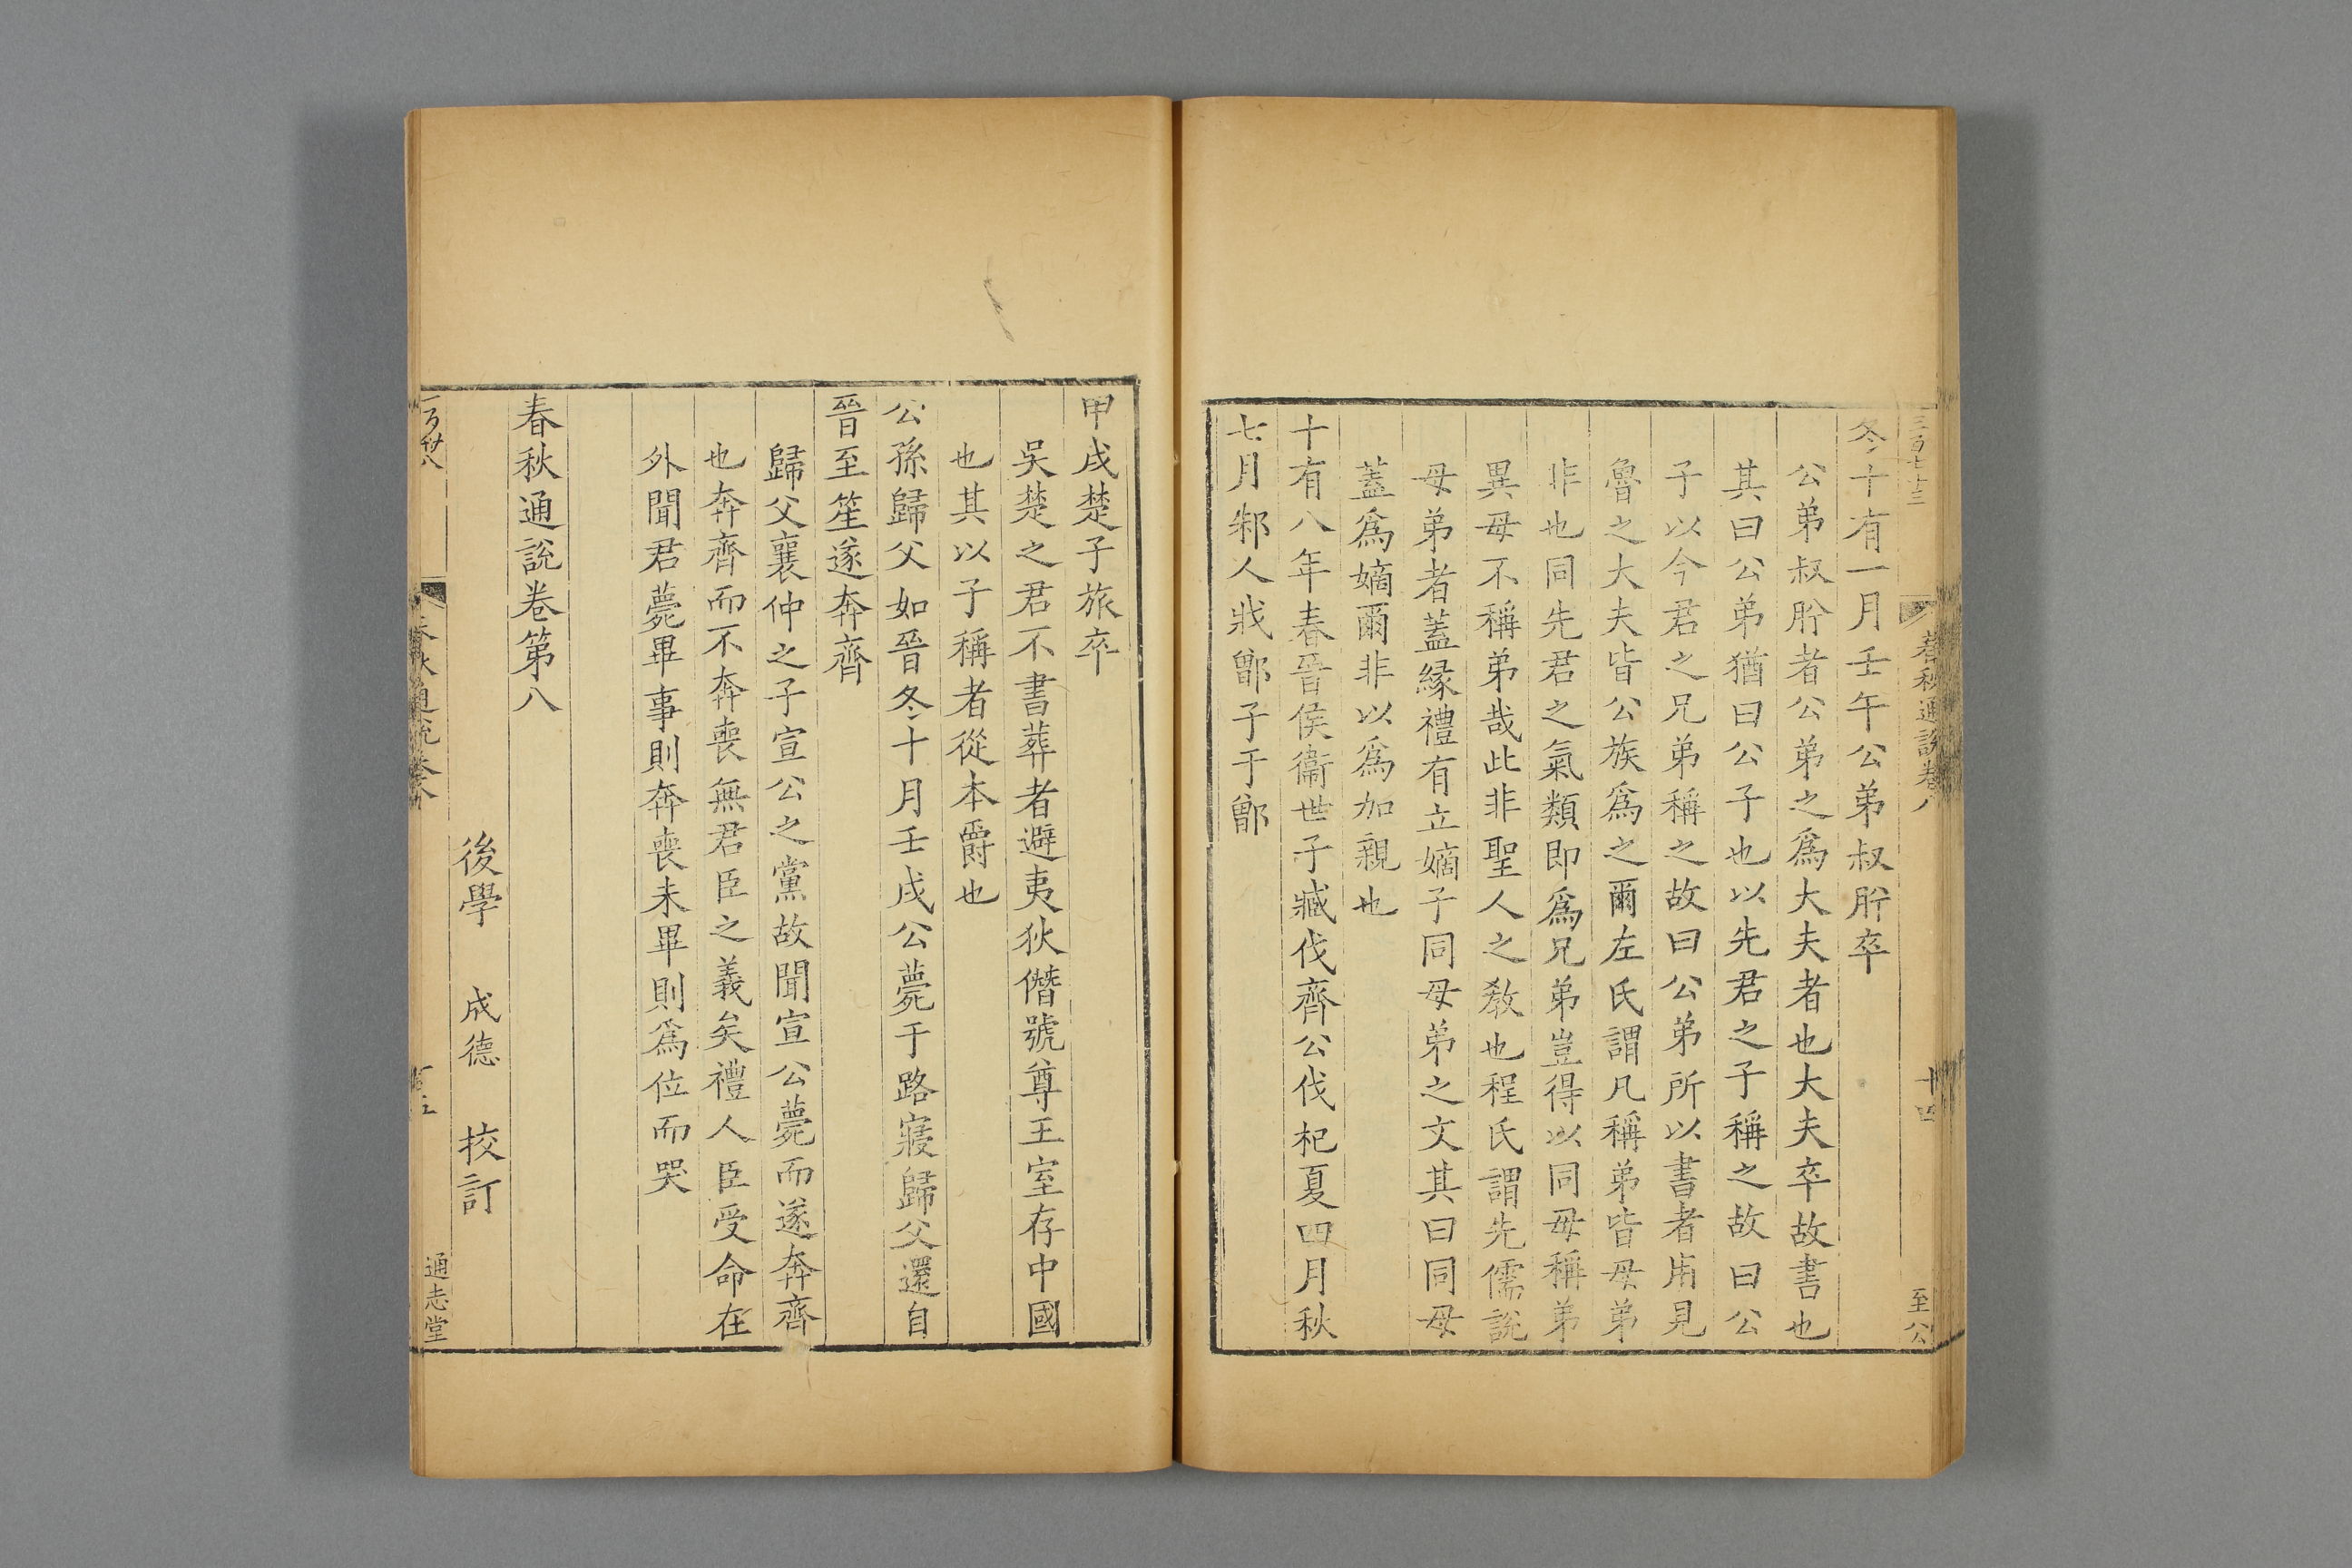 三百七十三
春秋通說卷八
十四
至公
冬十有一月壬午公弟叔肸卒
公弟叔肸者公弟之爲大夫者也大夫卒故書也
其曰公弟猶曰公子也以先君之子稱之故曰公
子以今君之兄弟稱之故曰公弟所以書者用見
魯之大夫皆公族爲之爾左氏謂凡稱弟皆母弟
非也同先君之氣類即爲兄弟豈得以同母稱弟
異母不稱弟哉此非聖人之教也程氏謂先儒說
母弟者蓋緣禮有立嫡子同母弟之文其曰同母
蓋爲嫡爾非以爲加親也
十有八年春晉侯衞世子臧伐齊公伐杞夏四月秋
七月邾人戕鄫子于鄫
甲戌楚子旅卒
吳楚之君不書葬者避夷狄僭號尊王室存中國
也其以子稱者從本爵也
公孫歸父如晉冬十月壬戌公薨于路寢歸父還自
晉至笙遂奔齊
歸父襄仲之子宣公之黨故聞宣公薨而遂奔齊
也奔齊而不奔喪無君臣之義矣禮人臣受命在
外聞君薨畢事則奔喪未畢則爲位而哭
春秋通說卷第八
後學 成德 校訂
春秋通說卷八
通志堂